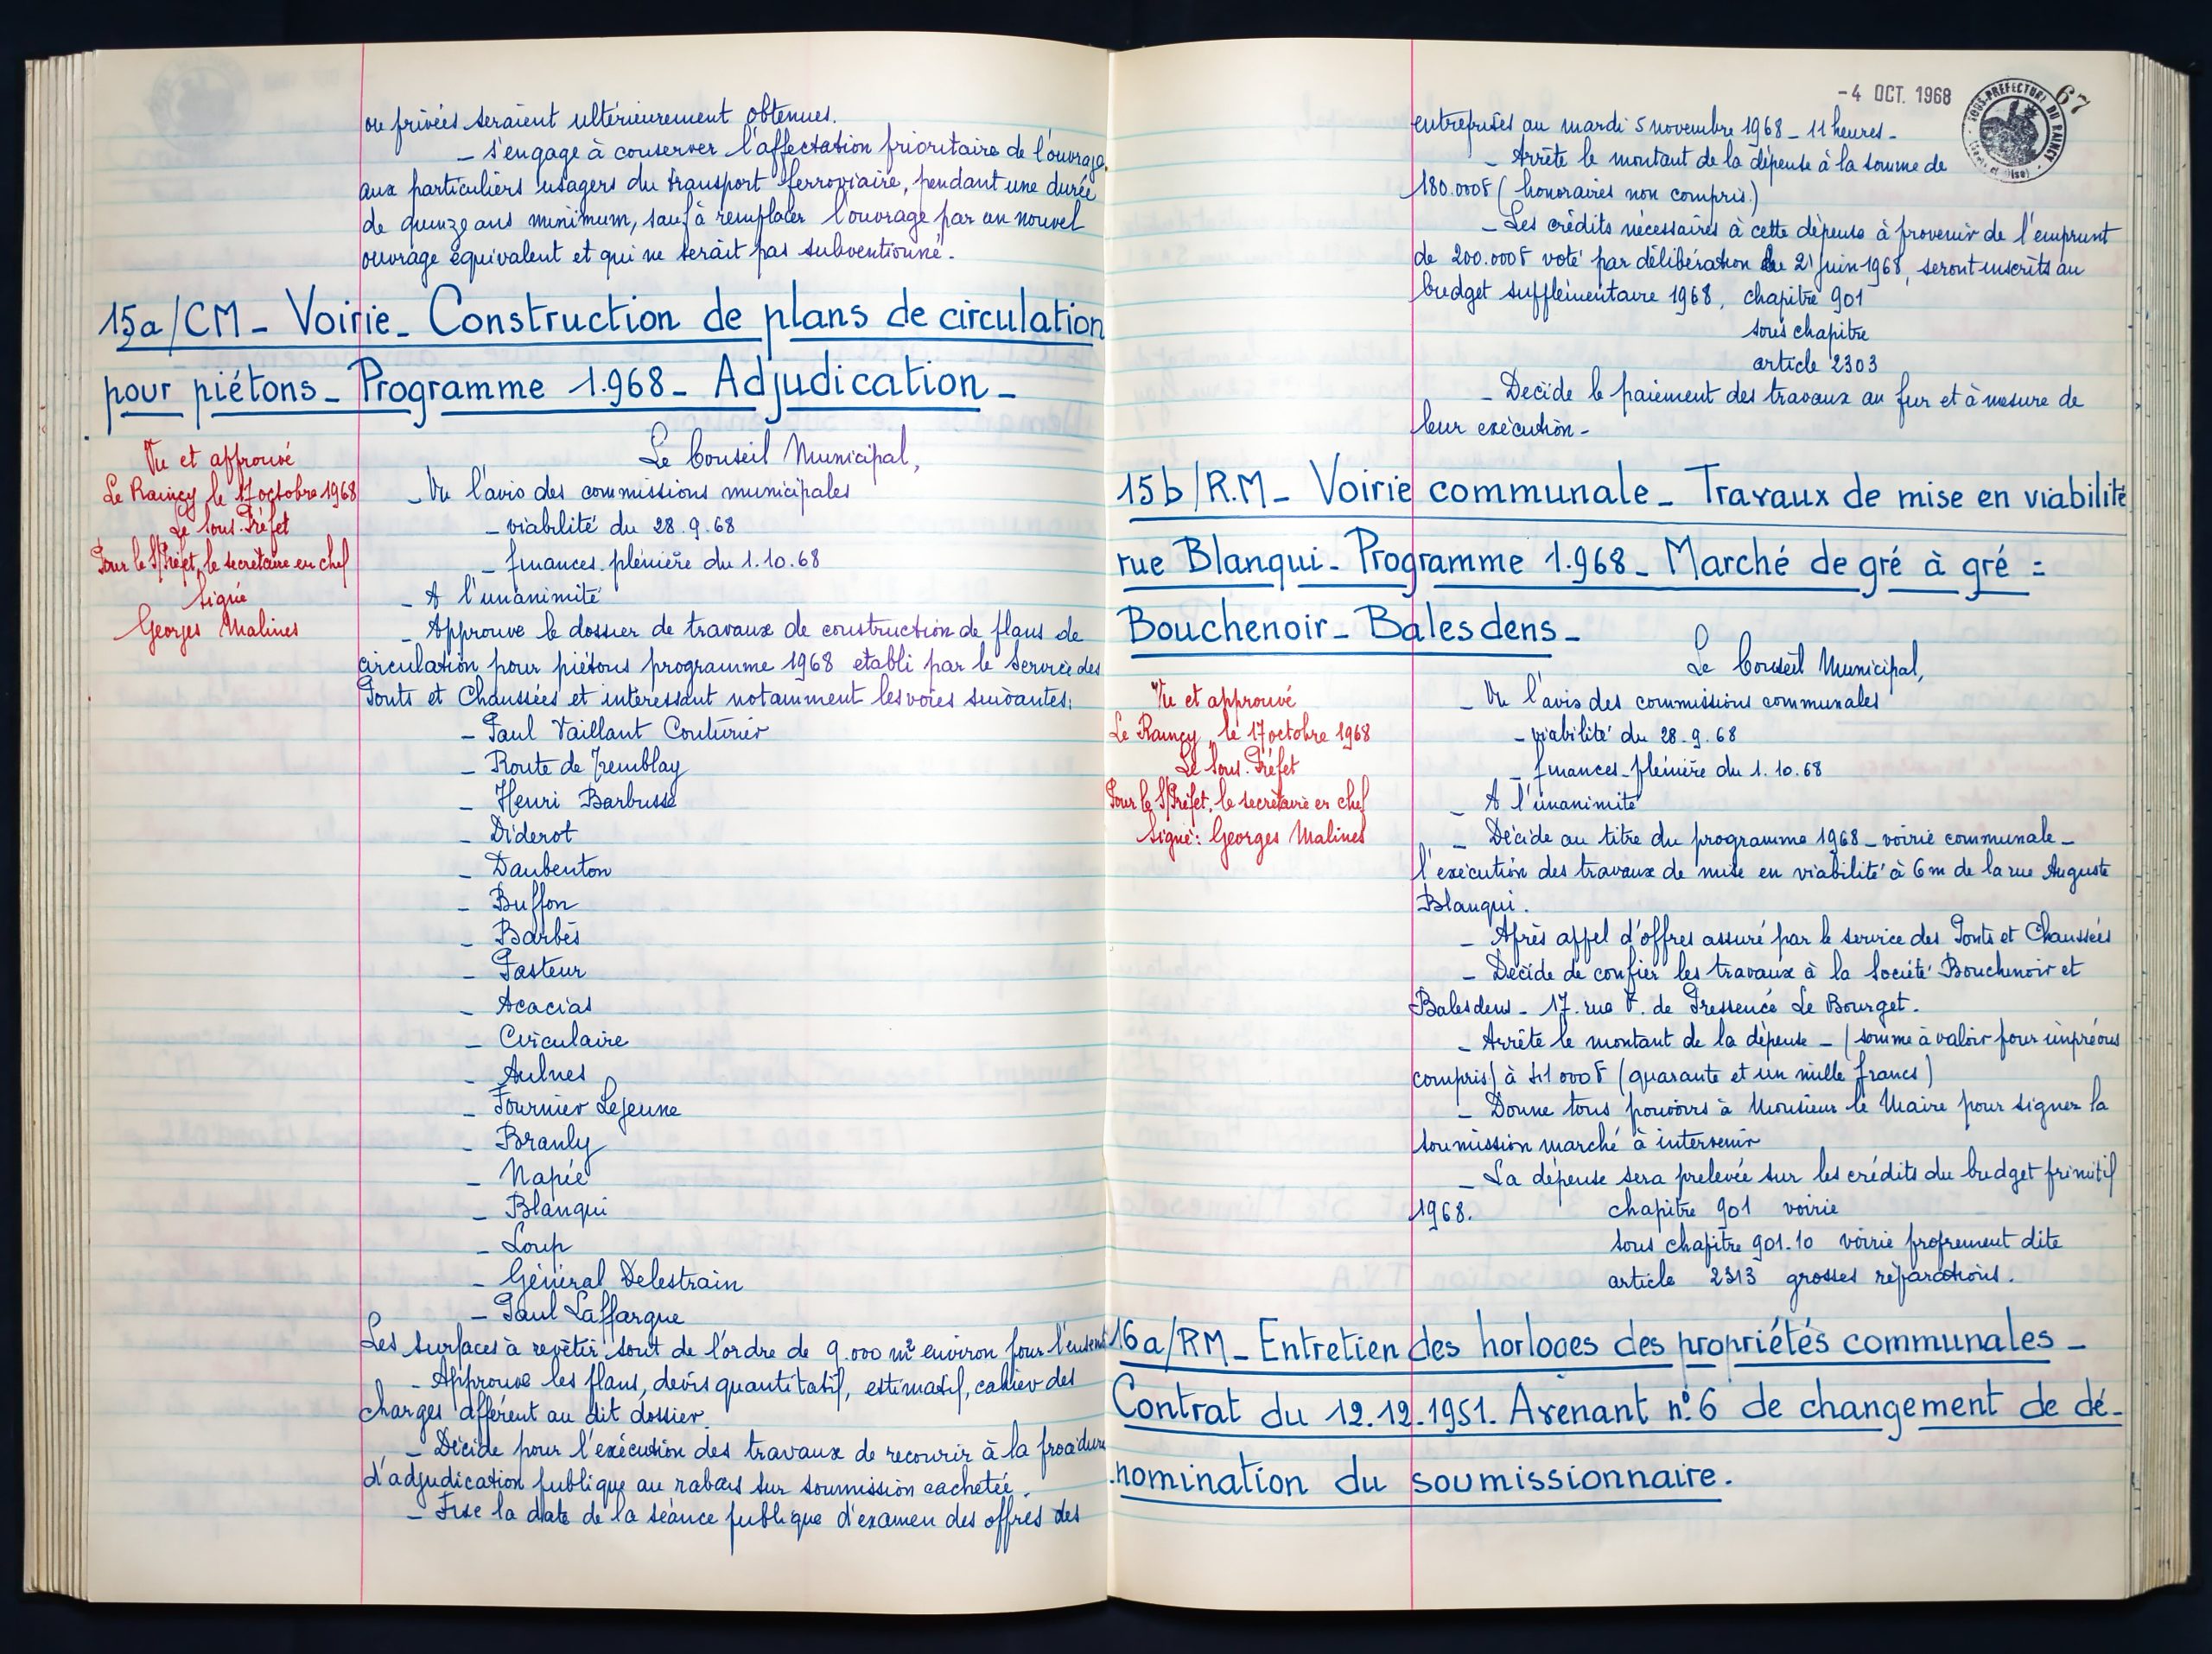 ou privées seraient ultérieurement obtenues.
- s'engage à conserver l'affectation prioritaire de l'ouvrage
aux particuliers usagers du transport ferroviaire, pendant une durée
de quinze ans minimum, sauf à remplacer l'ouvrage par un nouvel
ouvrage équivalent et qui ne serait pas subventionné.
15a/CM - Voirie - Construction de plans de circulation
pour piétons - Programme 1.968 - Adjudication -
Vu et approuvé
Le Raincy, le 17 octobre 1968
Le Sous-Préfet
Pour le S/Préfet, le secrétaire en chef
signé
Georges Malines
Le Conseil Municipal,
- Vu l'avis des commissions municipales
- viabilité du 28.9.68
- finances-plénière du 1.10.68
- A l'unanimité
- Approuve le dossier de travaux de construction de plans de
circulation pour piétons programme 1968 établi par le Service des
Ponts et Chaussées et intéressant notamment les voies suivantes:
- Paul Vaillant Couturier
- Route de Tremblay
- Henri Barbusse
- Diderot
- Daubenton
- Buffon
- Barbès
- Pasteur
- Acacias
- Circulaire
- Aulnes
- Fournier Lejeune
- Branly
- Napée
- Blanqui
- Loup
- Général Delestrain
- Paul Laffargue
Les surfaces à revêtir sont de l'ordre de 9.000 m² environ pour l'ensem
- Approuve les plans, devis quantitatif, estimatif, cahier des
charges afférent au dit dossier.
- Décide pour l'exécution des travaux de recourir à la procédure
d'adjudication publique au rabais sur soumission cachetée.
- Fixe la date de la séance publique d'examen des offres des
-4 OCT. 1968
67
SOUS-PREFECTURE DU RAINCY
entreprises au mardi 5 novembre 1968 - 11 heures -
- Arrête le montant de la dépense à la somme de
180.000F (honoraires non compris.)
- Les crédits nécessaires à cette dépense à provenir de l'emprunt
de 200.000F voté par délibération du 21 juin 1968, seront inscrits au
budget supplémentaire 1968, chapitre 901
sous chapitre
article 2303
- Décide le paiement des travaux au fur et à mesure de
leur exécution -
15b/R.M - Voirie communale - Travaux de mise en viabilité
rue Blanqui - Programme 1.968 - Marché de gré à gré =
Bouchenoir - Balesdens -
Vu et approuvé
Le Raincy, le 17 octobre 1968
Le Sous-Préfet
Pour le S/Préfet, le secrétaire en chef
signé: Georges Malines
Le Conseil Municipal,
- Vu l'avis des commissions communales
- viabilité du 28.9.68
- finances-plénière du 1.10.68
- A l'unanimité
- Décide au titre du programme 1968 - voirie communale -
l'exécution des travaux de mise en viabilité à 6m de la rue Auguste
Blanqui.
- Après appel d'offres assuré par le service des Ponts et Chaussées
- Décide de confier les travaux à la Société Bouchenoir et
Balesdens - 17. rue F. de Pressencé Le Bourget.
- Arrête le montant de la dépense - (somme à valoir pour imprévus
compris) à 41 000F (quarante et un mille francs)
- Donne tous pouvoirs à Monsieur le Maire pour signer la
soumission marché à intervenir
- La dépense sera prelevée sur les crédits du budget primitif
1968. chapitre 901 voirie
sous chapitre 901.10 voirie proprement dite
article 2313 grosses réparations.
16a/RM - Entretien des horloges des propriétés communales -
Contrat du 12.12.1951. Avenant n° 6 de changement de dé-
nomination du soumissionnaire.